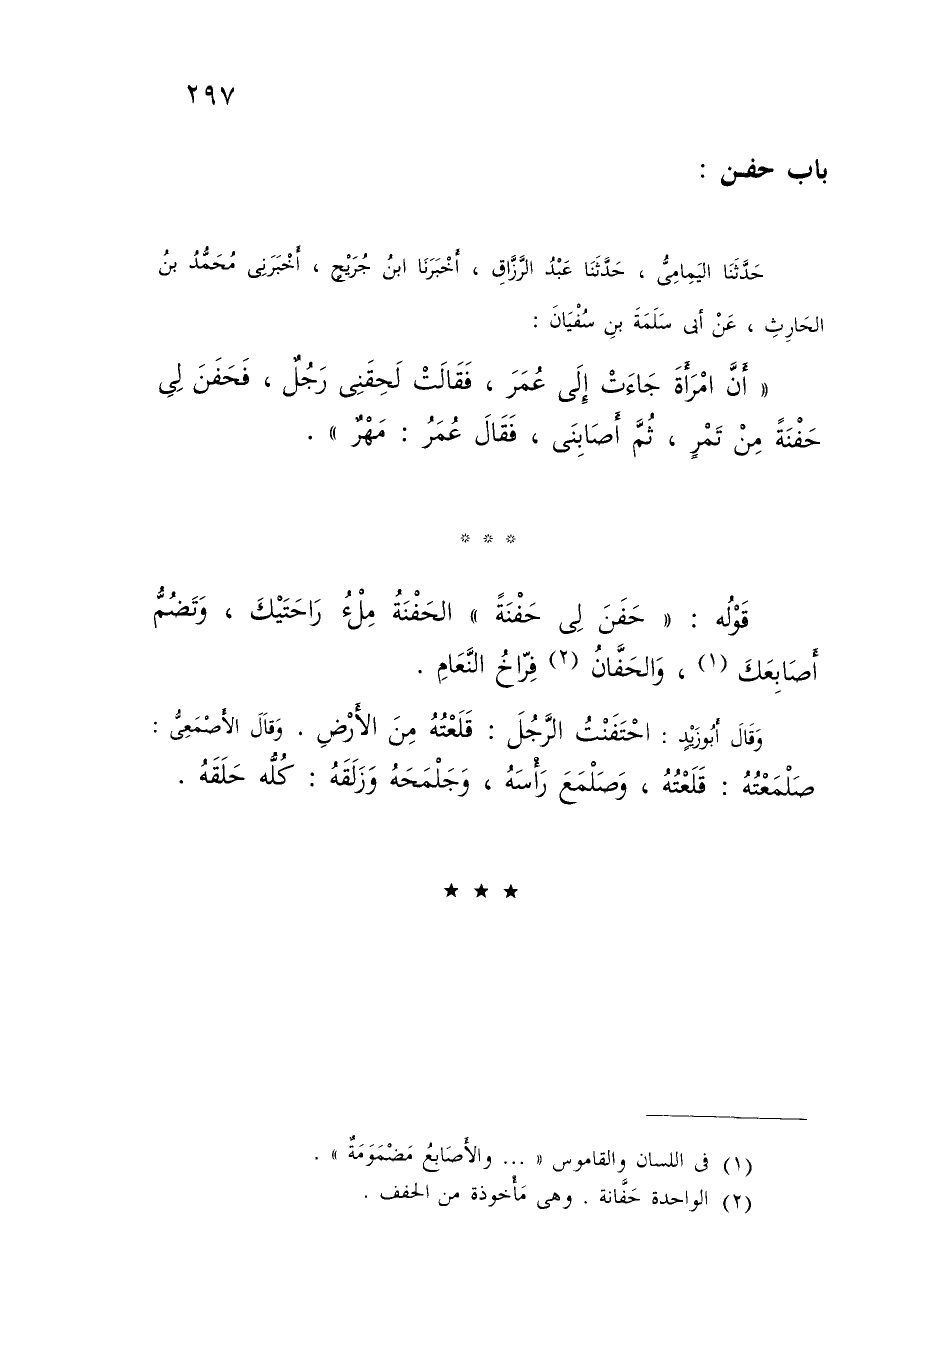 ٢٩٧
باب حفـن :
حَدَّثَنَا اليَمِامِىُّ ، حَدَّثَنَا عَبْدُ الرَّزَّاقِ ، أَخْبَرَنَا ابنُ جُرَيْجٍ ، أَخْبَرَنِى مُحَمَّدُ بنُ
الحَارِثِ ، عَنْ أبى سَلَمَةَ بنِ سُفْيَانَ :
« أَنَّ امْرَأَةَ جَاءَتْ إِلَى عُمَرَ ، فَقَالَتْ لَحِقَنِى رَجُلٌ ، فَحَفَنَ لِي
حَفْنَةً مِنْ تَمْرٍ ، ثُمَّ أَصَابِنَى ، فَقَالَ عُمَرُ : مَهْرٌ » .
* * *
قَوْلُه : « حَفَنَ لِى حَفْنَةً » الحَفْنَةُ مِلْءُ رَاحَتَيْكَ ، وَتَضُمُّ
أَصَابِعَكَ (١) ، وَالحَفَّانُ (٢) فِرّاخُ النَّعَامِ .
وَقَالَ أَبُوزَيْدٍ : احْتَفَنْتُ الرَّجُلَ : قَلَعْتُهُ مِنَ الأَرْضِ . وَقاَلَ الأَصْمَعِىُّ :
صَلْمَعْتُهُ : قَلَعْتُهُ ، وَصَلْمَعَ رَأْسَهُ ، وَجَلْمَحَهُ وَزَلَقَهُ : كُلُّه حَلَقَهُ .
★ ★ ★
(١) فى اللسان والقاموس « ... والأَصَابعُ مَضْمَوَمَةٌ » .
(٢) الواحدة حَفَّانة . وهى مَأْخوذة من الحفف .